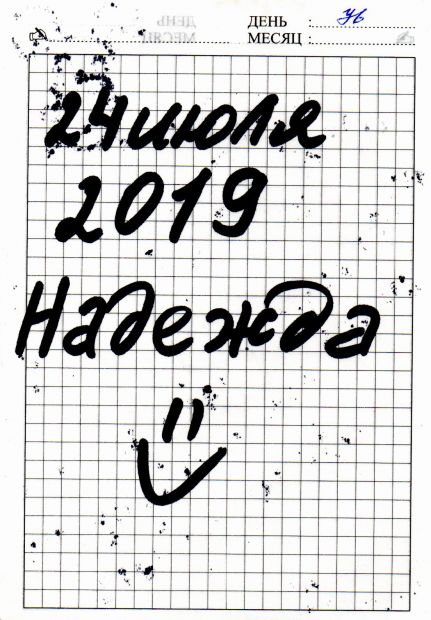 ДЕНЬ :
МЕСЯЦ :
24 июля
2019
Надежда